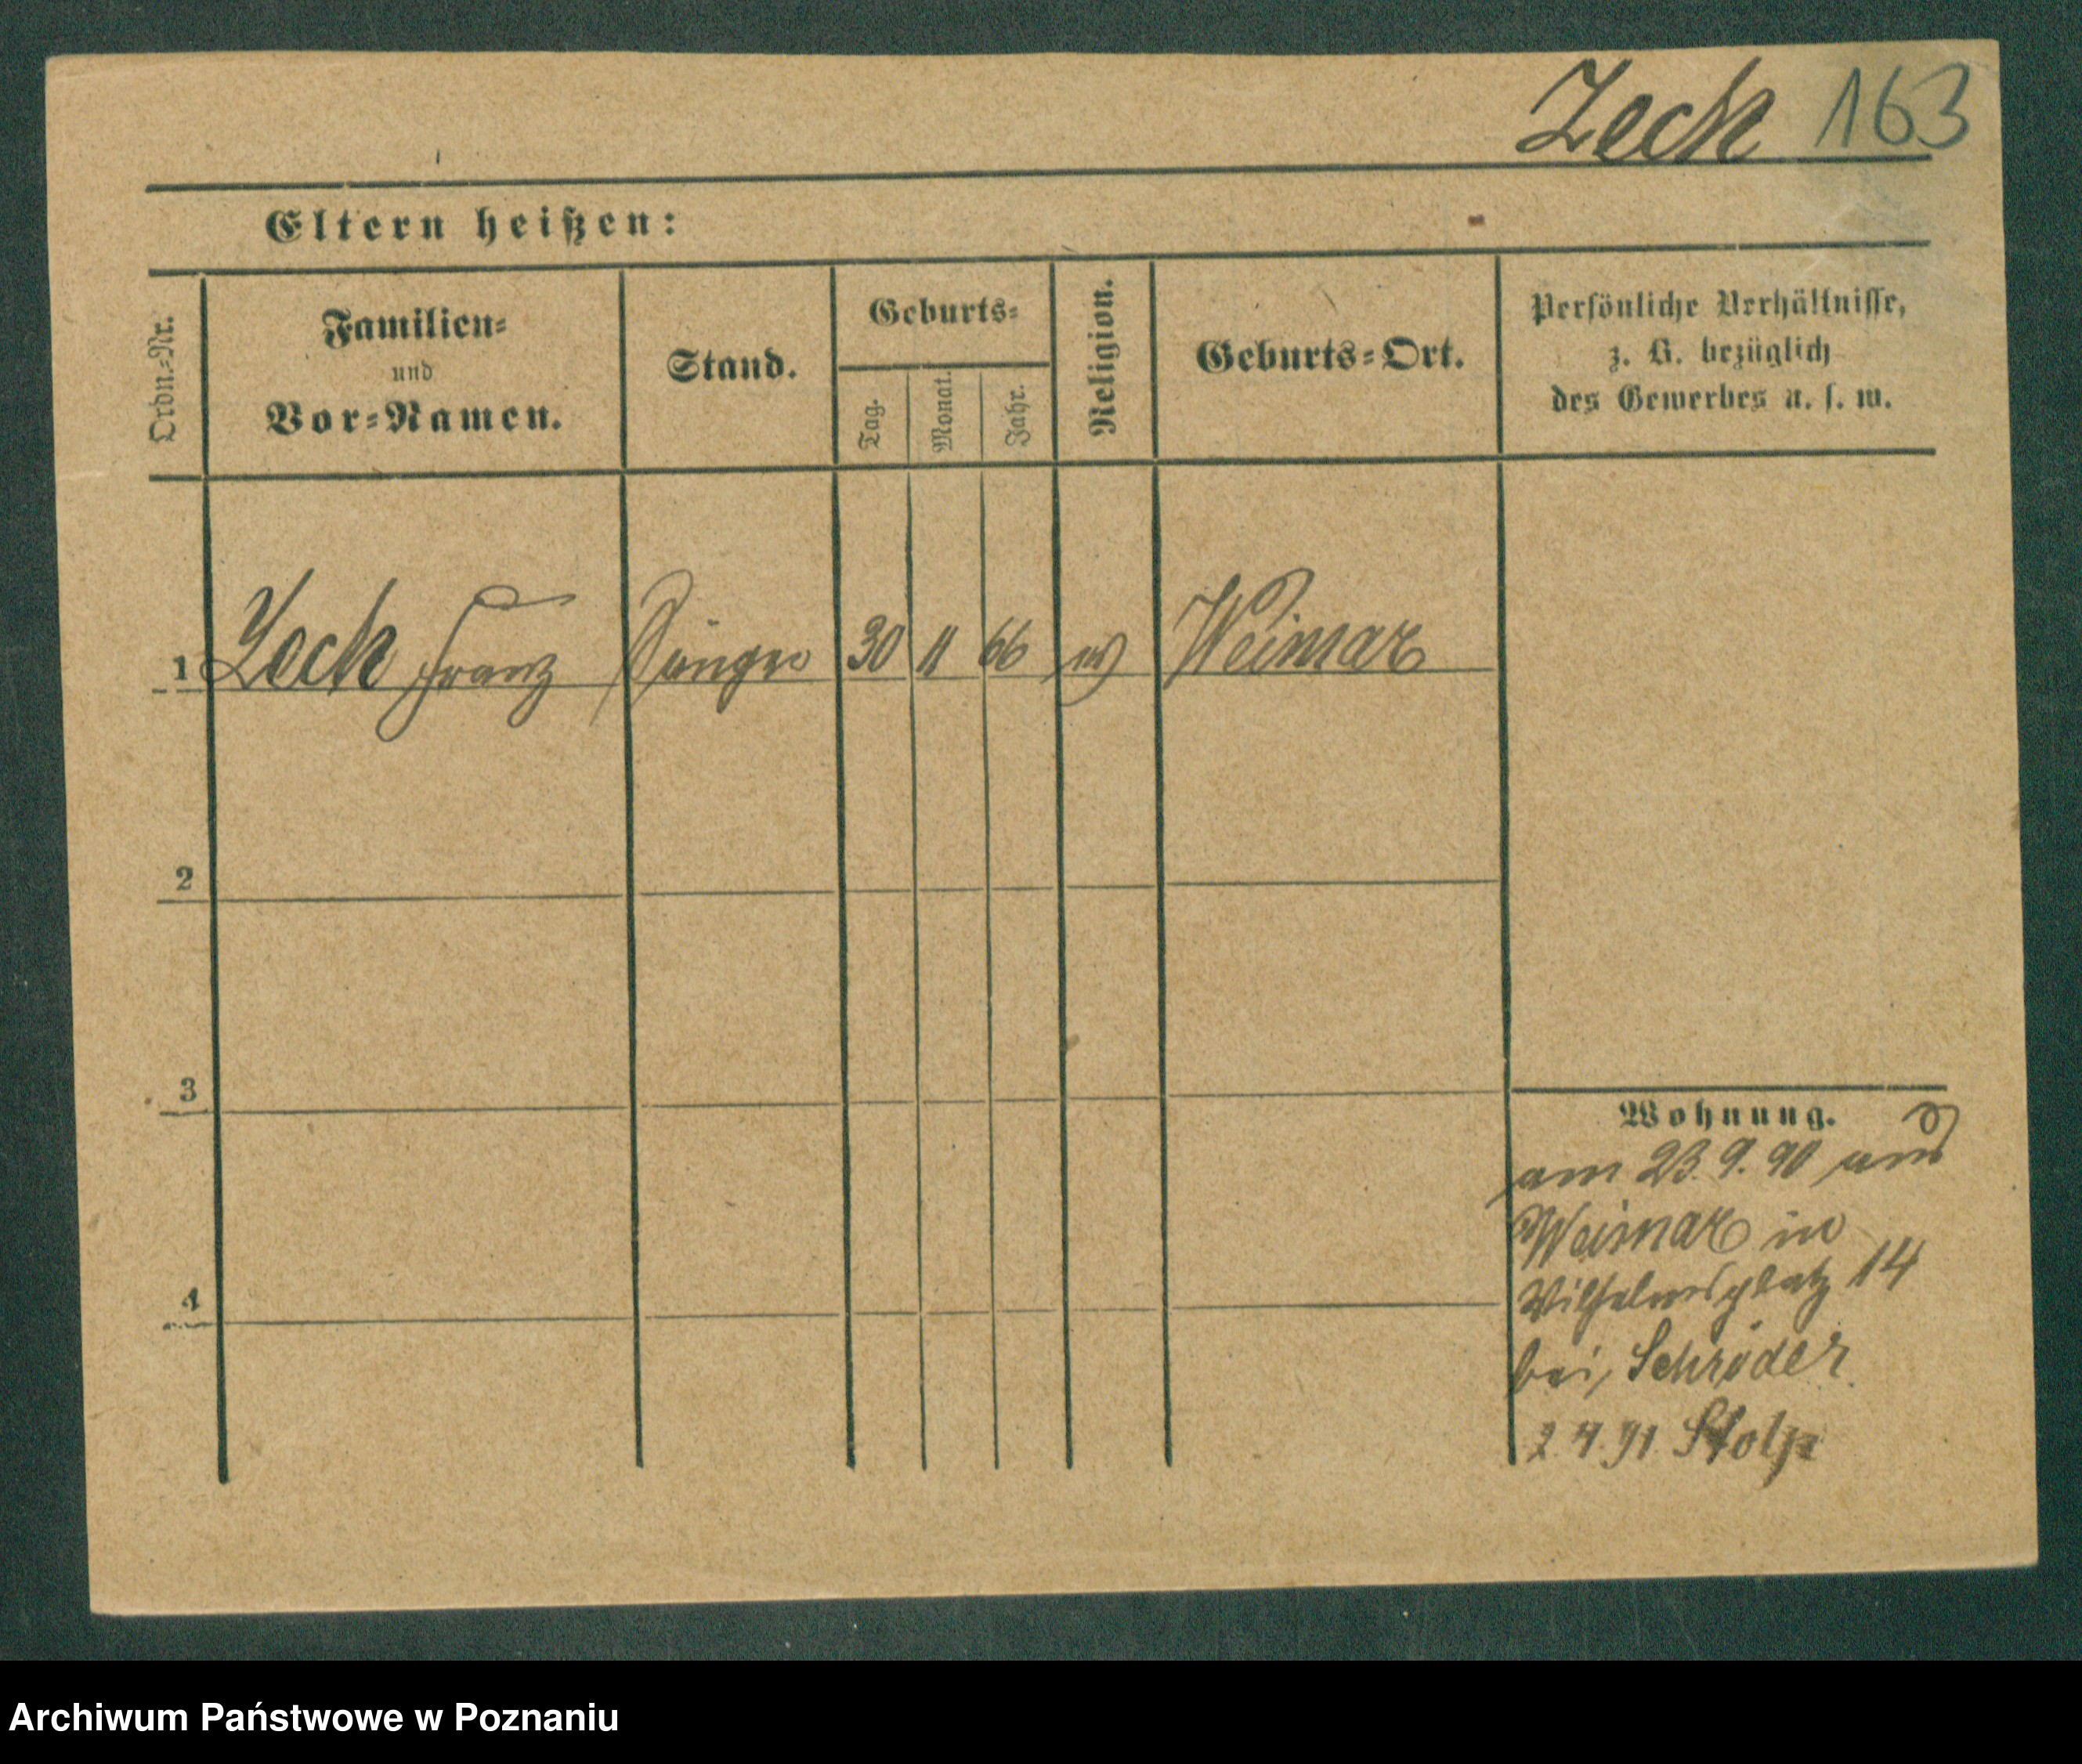 Zeck 163
Eltern heißen:
Ordn.-Nr.
Familien-
und
Vor-Namen.
Stand.
Geburts-
Tag.
Monat.
Jahr.
Religion.
Geburts-Ort.
Persönliche Verhältnisse,
z. B. bezüglich
des Gewerbes u. s. w.
1 Zeck Franz Sänger 30 11 66 ev Weimar
2
3
4
Wohnung.
am 23. 9. 90 aus
Weimar in
Wilhelmsplatz 14
bei Schröder
2. 4. 91. Stolp
Archiwum Państwowe w Poznaniu